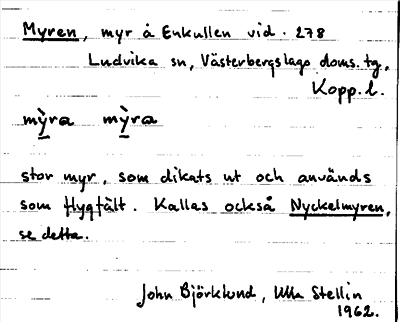 Myren, myr å Enkullen vid. 278
Ludvika sn, Västerbergslags doms. tg,
Kopp. l.
mỳra mỳra
stor myr, som dikats ut och används
som flygfält. Kallas också Nyckelmyren,
se detta.
John Björklund, Ulla Stellin
1962.